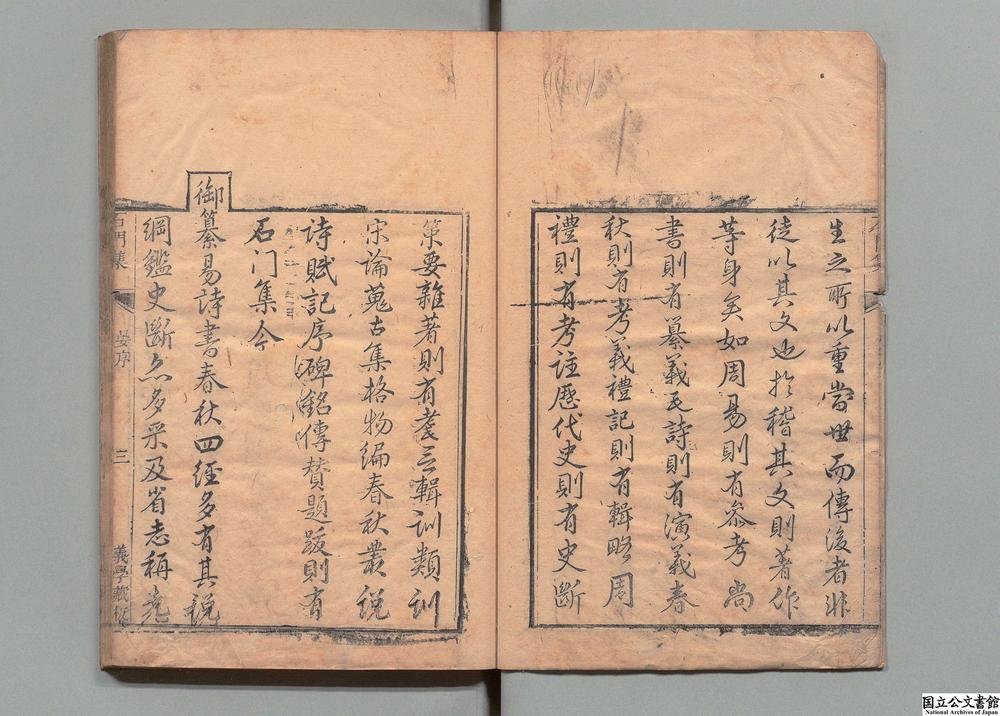 生之所以重當世而傳後者非
徒以其文也於稽其文則著作
等身矣如周易則有參考尚
書則有纂義毛詩則有演義春
秋則有考義禮記則有輯略周
禮則有考註歷代史則有史斷
策要雜著則有耄言輯訓類訓
宋論蒐古集格物編春秋叢說
詩賦記序碑銘傳贊題跋則有
石门集今
御纂易詩書春秋四經多有其說
綱鑑史斷亦多采及省志稱
石門集
晏序
三
義學藏板
国立公文書館
National Archives of Japan